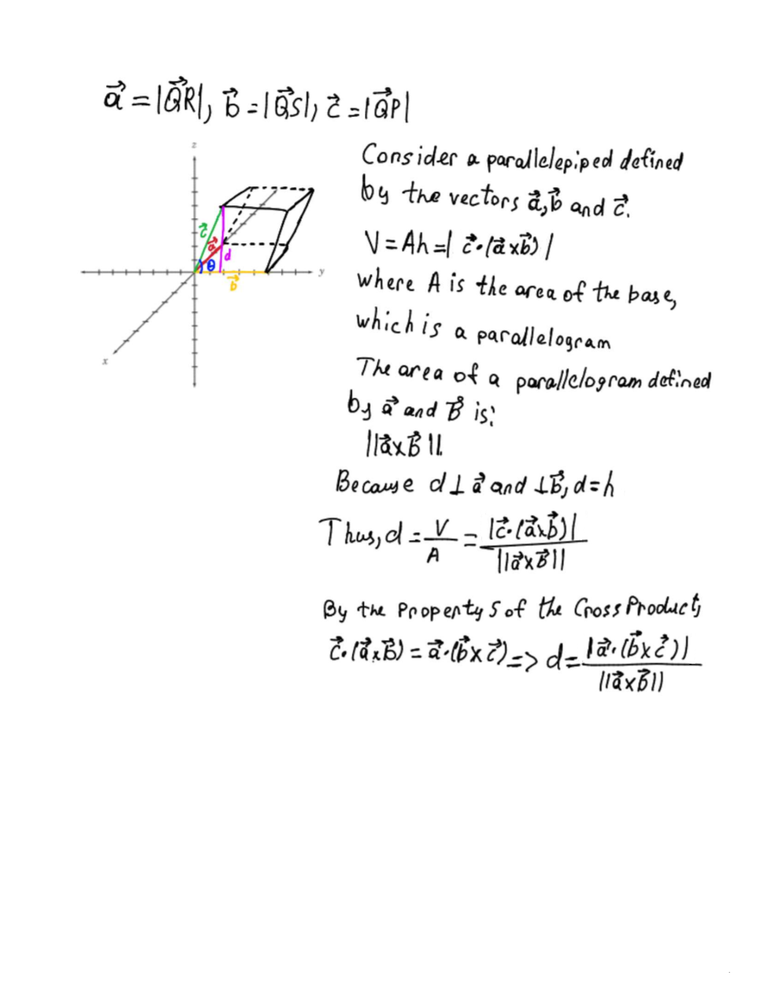 a⃗ = |Q⃗R|, b⃗ = |Q⃗S|, c⃗ = |Q⃗P|
z
c⃗
a⃗
d
θ
b⃗
y
x
Consider a parallelepiped defined
by the vectors a⃗, b⃗ and c⃗.
V = Ah = | c⃗·(a⃗ x b⃗) |
where A is the area of the base,
which is a parallelogram
The area of a parallelogram defined
by a⃗ and b⃗ is:
||a⃗ x b⃗||.
Because d ⊥ a⃗ and ⊥ b⃗, d = h
Thus, d = V/A = |c⃗·(a⃗ x b⃗)| / ||a⃗ x b⃗||
By the Property 5 of the Cross Product,
c⃗·(a⃗ x b⃗) = a⃗·(b⃗ x c⃗) => d = |a⃗·(b⃗ x c⃗)| / ||a⃗ x b⃗||